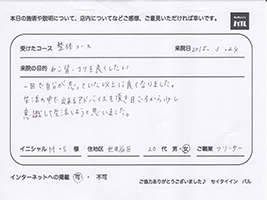 本日の施術や説明について、店内についてなどご感想、ご意見いただければ幸いです。
セイタイイン
バル
受けたコース 整体コース 来院日 2015. 5. 24
来院の目的 ねこ背、コリを良くしたい
一日で自分が思っていた以上に良くなりました。
生活の中で出来るアドバイスを頂き日ごろから少し
意識して生活しようと思いました。
イニシャル M・S 様 住地区 世田谷区 20代 男・女 ご職業 フリーター
インターネットへの掲載 可・不可
ご協力ありがとうございました♪ セイタイイン バル